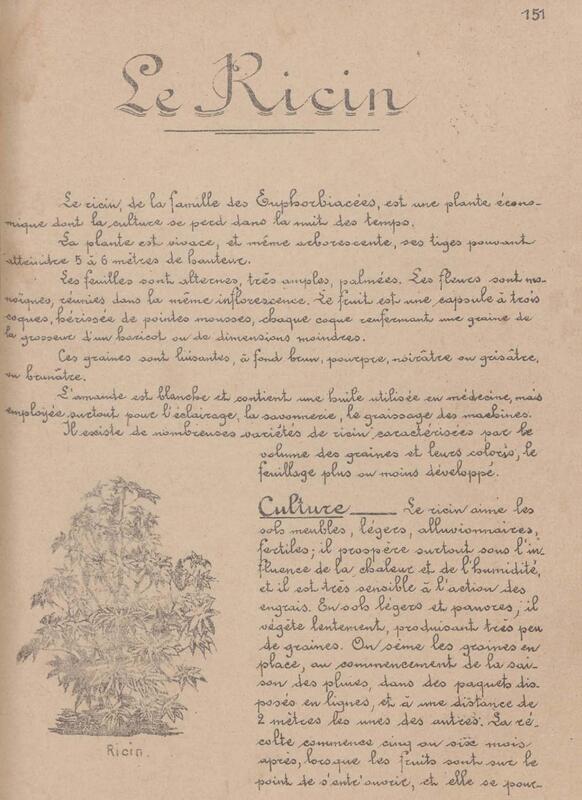 151
Le Ricin
Le ricin, de la famille des Euphorbiacées, est une plante écono-
mique dont la culture se perd dans la nuit des temps.
La plante est vivace, et même arborescente, ses tiges pouvant
atteindre 5 à 6 mètres de hauteur.
Les feuilles sont alternes, très amples, palmées. Les fleurs sont mo-
noïques, réunies dans la même inflorescence. Le fruit est une capsule à trois
coques, hérissée de pointes mousses, chaque coque renfermant une graine de
la grosseur d'un haricot ou de dimensions moindres.
Ces graines sont luisantes, à fond brun, pourpre, noirâtre ou grisâtre,
ou brunâtre.
L'amande est blanche et contient une huile utilisée en médecine, mais
employée surtout pour l'éclairage, la savonnerie, le graissage des machines.
Il existe de nombreuses variétés de ricin caractérisées par le
volume des graines et leurs coloris, le
feuillage plus ou moins développé.
Culture ___ Le ricin aime les
sols meubles, légers, alluvionnaires,
fertiles; il prospère surtout sous l'in-
fluence de la chaleur et de l'humidité,
et il est très sensible à l'action des
engrais. En sols légers et pauvres, il
végète lentement, produisant très peu
de graines. On sème les graines en
place, au commencement de la sai-
son des pluies, dans des paquets dis-
posés en lignes, et à une distance de
2 mètres les unes des autres. La ré-
colte commence cinq ou six mois
après, lorsque les fruits sont sur le
point de s'entr'ouvrir, et elle se pour-
Ricin.